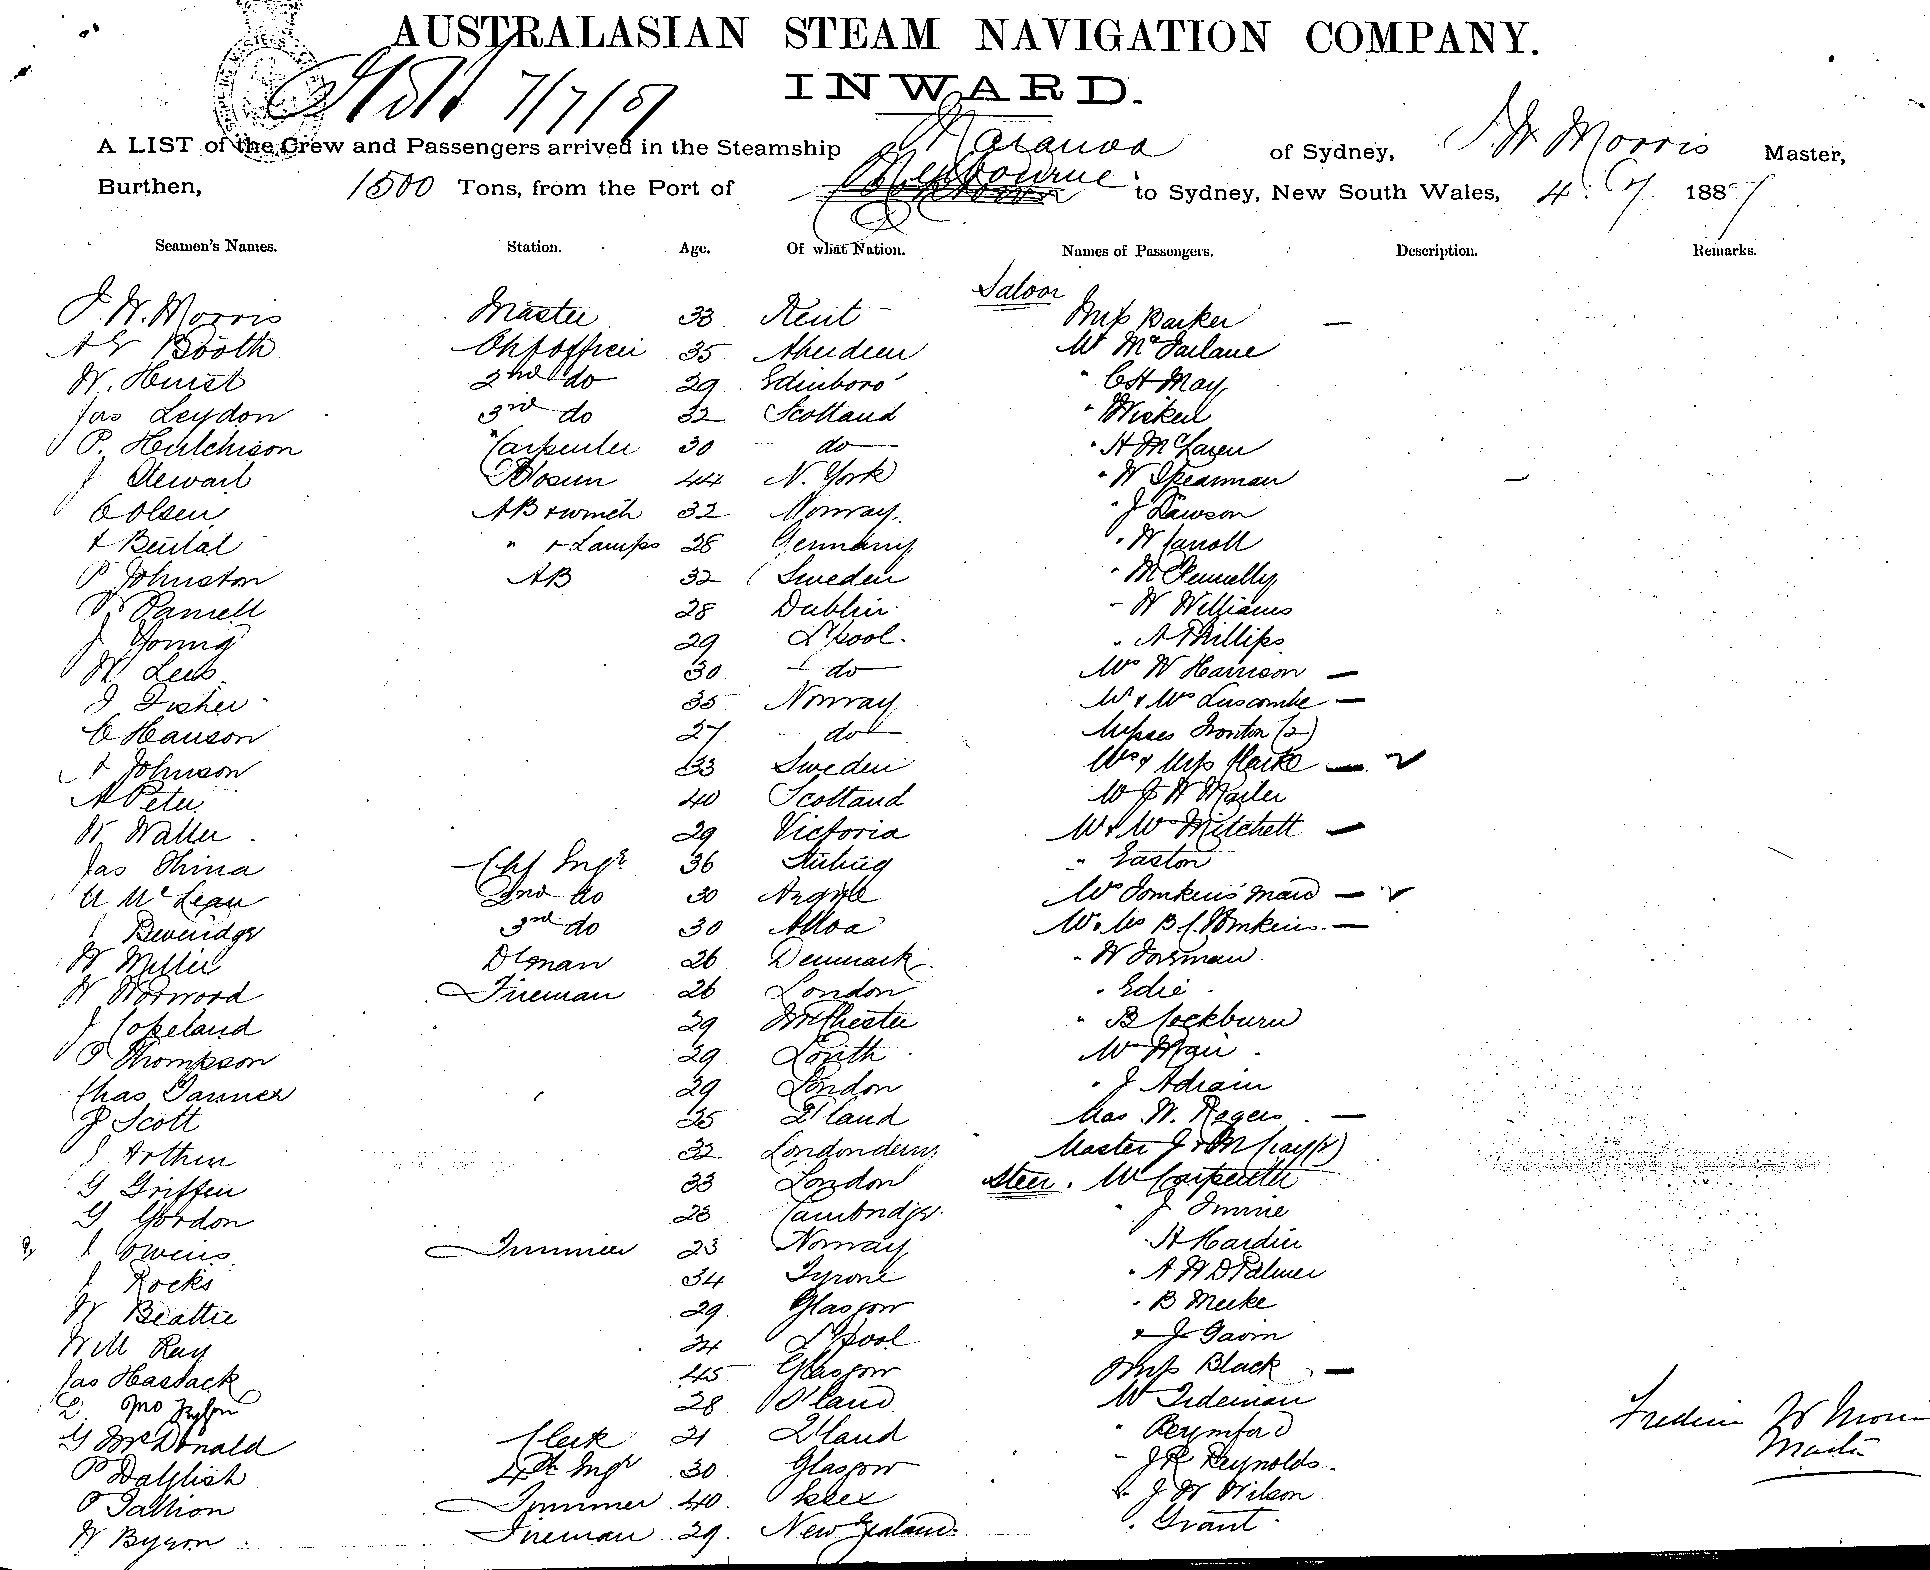 AUSTRALASIAN STEAM NAVIGATION COMPANY.
INWARD.
7/7/87
A LIST of the Crew and Passengers arrived in the Steamship Maranoa of Sydney, J. W. Morris Master,
Burthen, 1500 Tons, from the Port of Melbourne to Sydney, New South Wales, 4. 7. 1887
Seamen's Names. Station. Age. Of what Nation. Names of Passengers. Description. Remarks.
Saloon
J. W. Morris Master 33 Kent Miss Barker —
A G Booth Chf officer 35 Aberdeen Mr McFarlane
W. Hurst 2nd do 29 Edinboro' " C H May
Jas Leydon 3rd do 32 Scotland "
P. Hutchison Carpenter 30 do " H McLaren
J Stewart Bosun 44 N. York " W Spearman
C Olsen AB + winch 32 Norway " J Dawson
Beutal " + Lamps 28 Germany " W Carroll
P Johnston AB 32 Sweden "
P Parnell 28 Dublin " W Williams
J Young 29 L'pool " A Phillips
W Lees 30 do Mrs W Harrison —
J Fisher 35 Norway Mr & Mrs Luscombe —
C Hanson 27 do Misses (2)
Johnson 33 Sweden Mrs & Miss Clarke —
A Peter 40 Scotland Mr J W
W Walter 29 Victoria Mr & Mrs Mitchell —
Jas Shina Chf Engr 36 " Easton
McLean 2nd do 30 Argyle Mrs Tomkins' maid —
J Beveridge 3rd do 30 Alloa Mr & Mrs B C Tomkins —
W Miller 26 Denmark " W
W Worwood Fireman 26 London " Edie
J Copeland 29 " B Cockburn
P Thompson 29 Louth Mr Mair
Chas Tanner 29 London " J Adrain
J Scott 25 Q'land Mrs W. Rogers —
J Arthur 32 Londonderry Master J & M
G Griffen 33 London Steer. Mr Carpenter
G Gordon 23 Cambridge " J Imrie
J Owens Trimmer 23 Norway " H Hardin
J Rocks 34 Tyrone " A W D Palmer
W Beattie 29 Glasgow " B Meeke
W M Ray 24 L'pool " J Gavin
Jas Hassack 45 Glasgow Miss Black —
28 Mr Tideman
G McDonald Clerk 21 Q'land "
P Dalglish 4th Engr 30 Glasgow " J R Reynolds
P Trimmer 40 Essex " J W Wilson
W Byron Fireman 29 New Zealand " Grant
W Morris
Master